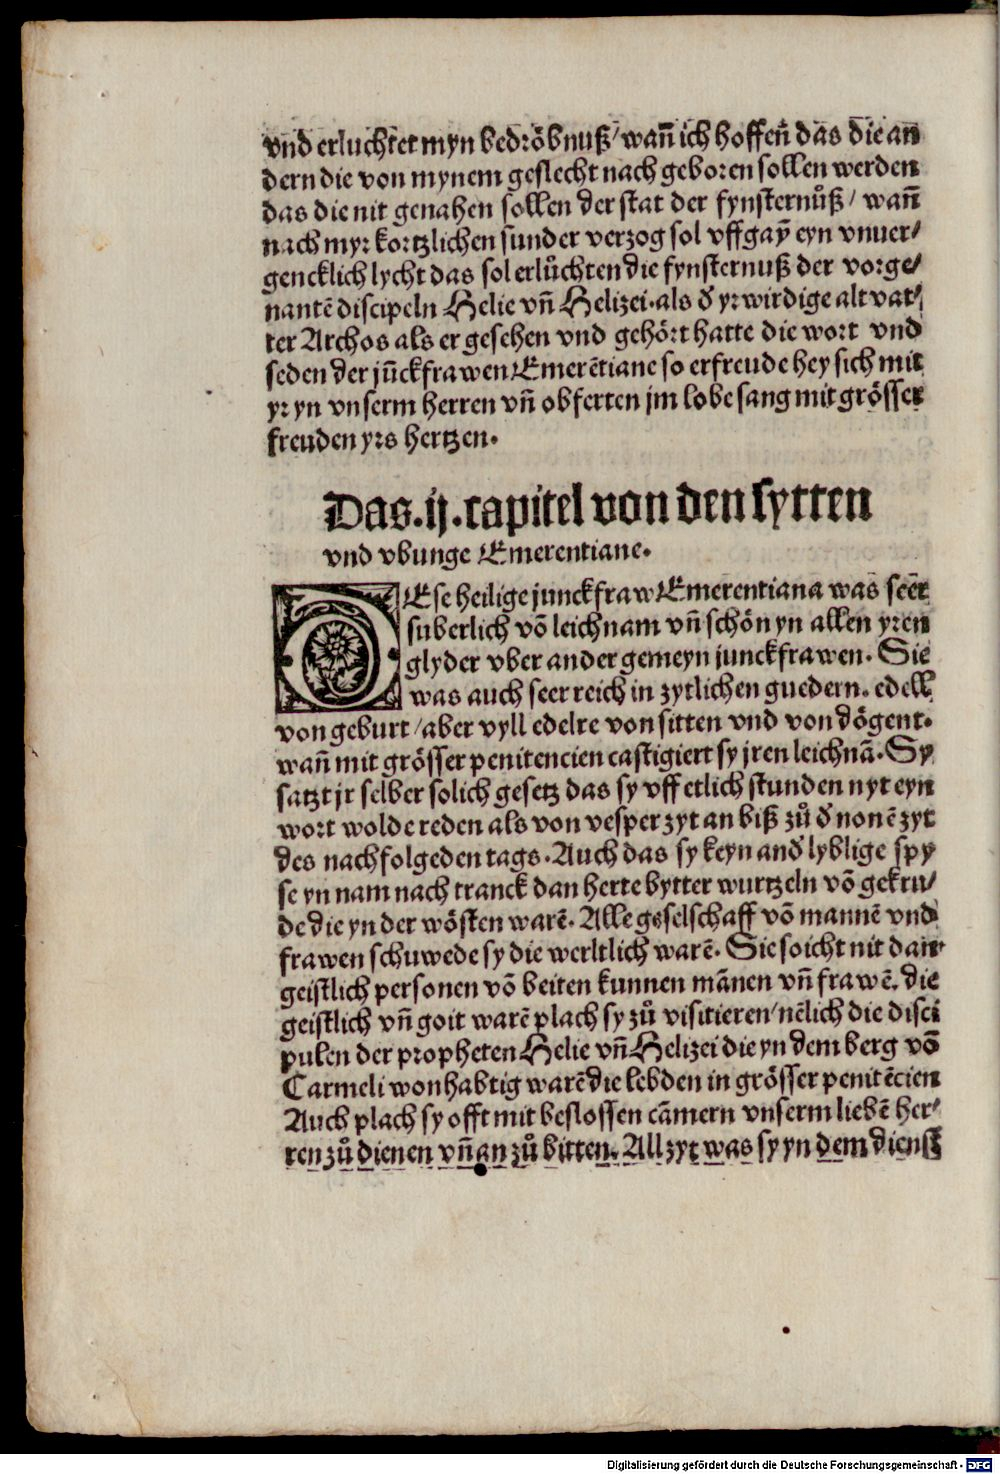 vnd erluchtet myn bedröbnuß/ wañ ich hoffeñ das die an
dern die von mynem geslecht nach geboren sollen werden
das die nit genahen sollen der stat der fynsternůß/ wañ
nach myr kortzlichen sunder verzog sol vffgaȳ eyn vnuer/
gencklich lycht das sol erlůchten die fynsternuß der vorge/
nantē discipeln Helie vñ Helizei. als đ yrwirdige alt vat/
ter Archos als er gesehen vnd gehört hatte die wort vnd
seden der jūckfrawen Emerētiane so erfreude hey sich mit
yr yn vnserm herren vñ obferten jm lobe sang mit grösser
freuden yrs hertzen.
Das .ij. capitel von den sytten
vnd vbunge Emerentiane.
DEse heilige junckfraw Emerentiana was seēr
suberlich vō leichnam vñ schön yn allen yren
glyder vber ander gemeyn junckfrawen. Sie
was auch seer reich in zytlichen guedern. edell
von geburt/ aber vyll edelre von sitten vnd von dögent.
wañ mit grösser penitencien castigiert sy jren leichnā. Sy
satzt jr selber solich gesetz das sy vff etlich stunden nyt eyn
wort wolde reden als von vesper zyt an biß zů đ nonē zyt
des nachfolgeden tags. Auch das sy keyn anđ lyblige spy
se yn nam nach tranck dan herte bytter wurtzeln vō gekru/
de die yn der wösten warē. Alle geselschaff vō mannē vnd
frawen schuwede sy die werltlich warē. Sie soicht nit dan
geistlich personen vō beiten kunnen mānen vñ frawē. die
geistlich vñ goit warē plach sy zů visitieren/ nēlich die disci
pulen der propheten Helie vñ Helizei die yn dem berg vō
Carmeli wonhabtig warē die lebden in grösser penitēcien
Auch plach sy offt mit beslossen cāmern vnserm liebē her/
ren zů dienen vñ an zů bitten. All zyt was sy yn dem dienst
Digitalisierung gefördert durch die Deutsche Forschungsgemeinschaft - DFG